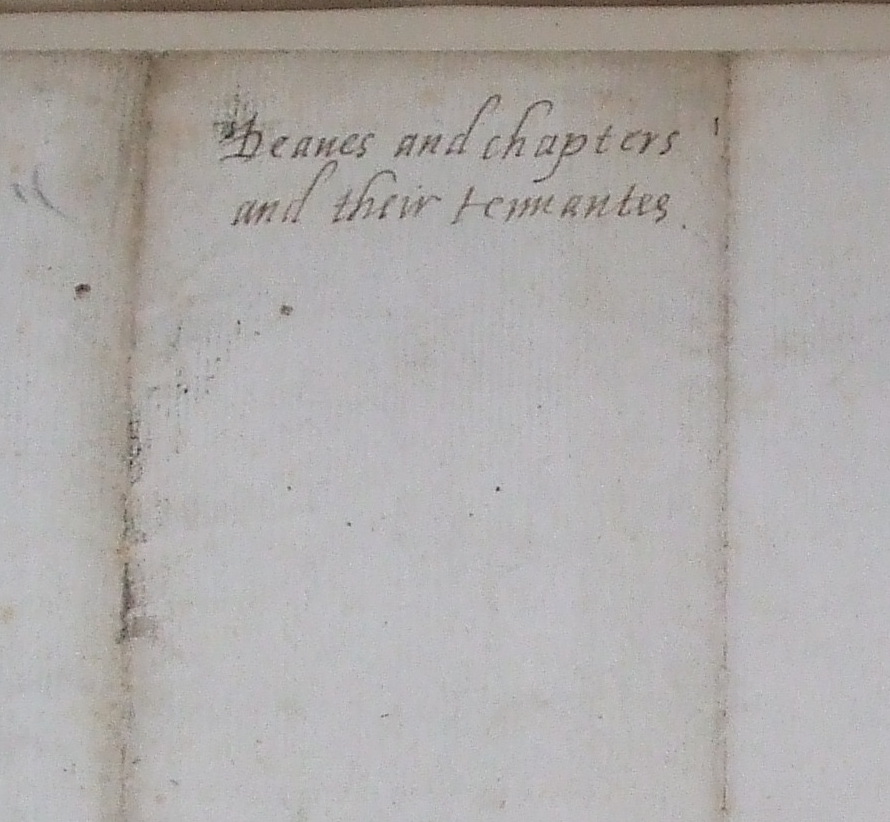 Deanes and chapters
and their tennantes